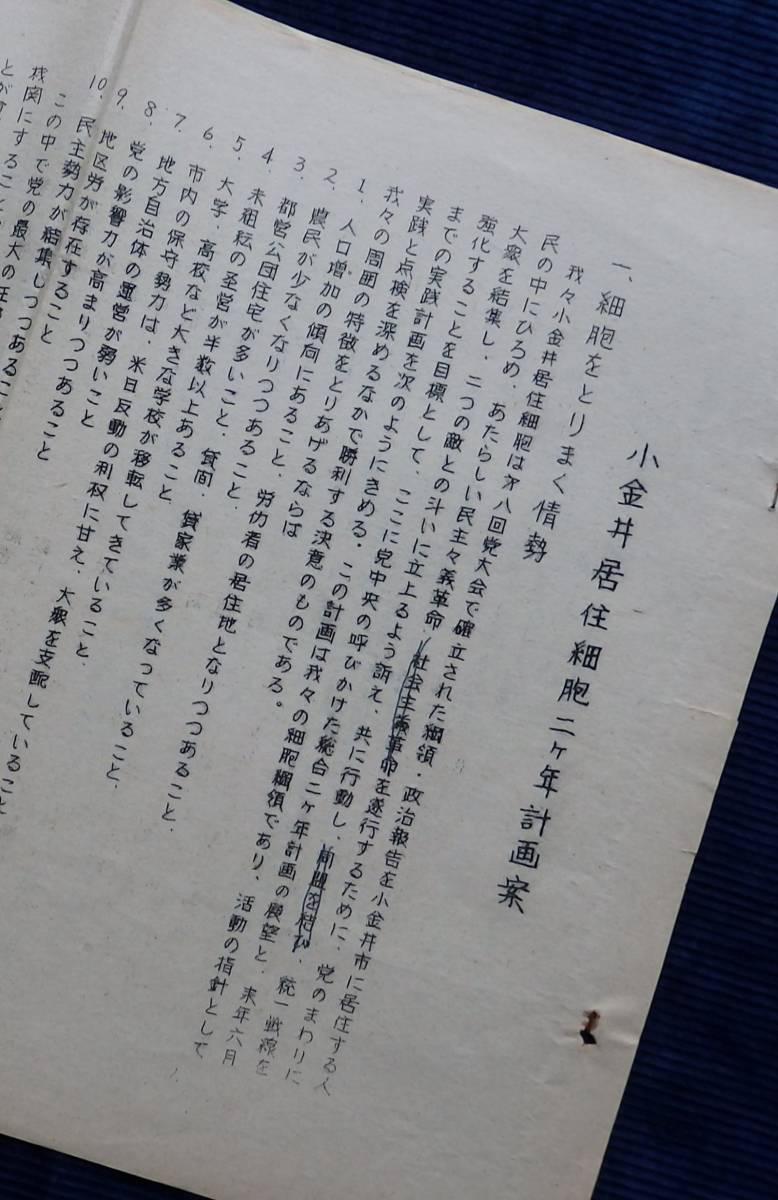 小金井居住細胞二ヶ年計画案
一、細胞をとりまく情勢
我々小金井居住細胞は才八回党大会で確立された綱領・政治報告を小金井市に居住する人
民の中にひろめ、あたらしい民主々義革命、社会主義革命を遂行するために、党のまわりに
大衆を結集し、二つの敵との斗いに立上るよう訴え、共に行動し、同盟を結び、統一戦線を
強化することを目標として、ここに党中央の呼びかけた総合二ヶ年計画の展望と、来年六月
までの実践計画を次のようにきめる。この計画は我々の細胞綱領であり、活動の指針として、
実践と点検を深めるなかで勝利する決意のものである。
我々の周囲の特徴をとりあげるならば
1、人口増加の傾向にあること、
2、農民が少なくなりつつあること、労仂者の居住地となりつつあること、
3、都営公団住宅が多いこと、貸間、貸家業が多くなっていること、
4、未組の圣営が半数以上あること
5、大学、高校など大きな学校が移転してきていること、
6、市内の保守勢力は、米日反動の利权に甘え、大衆を支配していること
7、地方自治体の運営が弱いこと
8、党の影響力が高まりつつあること
9、地区労が存在すること
10、民主勢力が結集しつつあること
この中で党の最大の任
機関にすること
とが